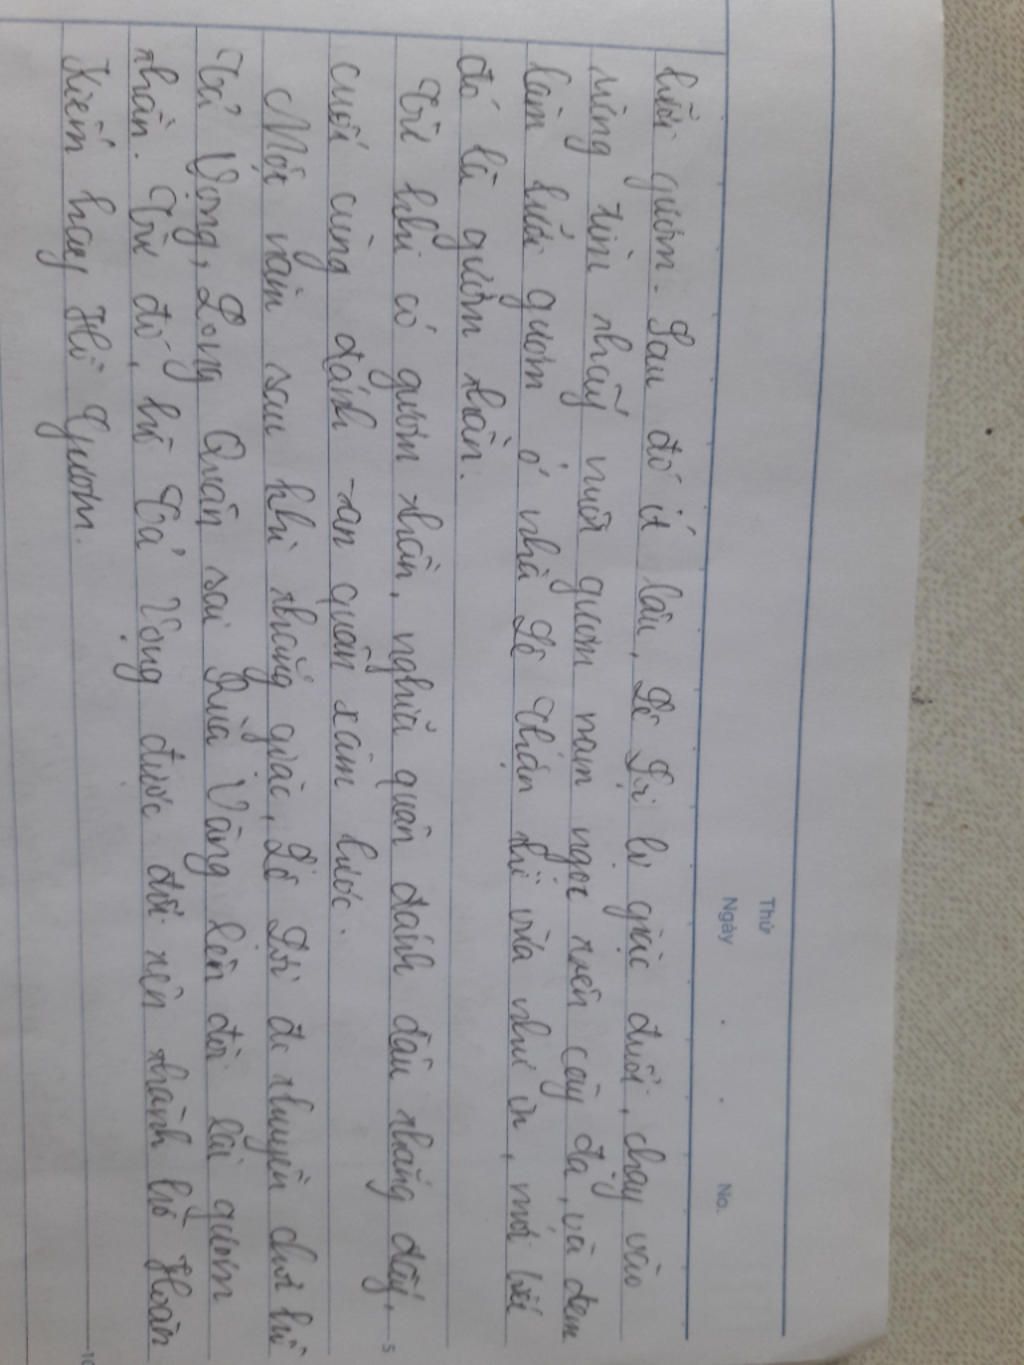 Thứ
Ngày . . No.
lưỡi gươm. Sau đó ít lâu, Lê Lợi bị giặc đuổi, chạy vào
rừng tìm thấy nuôi gươm nam ngọc trên cây đa, và đem
lắm lưỡi gươm ở nhà Lê Thận thì vừa như in, mới biết
đó là gươm thần.
Từ khi có gươm thần, nghĩa quân đánh đâu thắng đấy,
cuối cùng đánh tan quân xâm lược.
Một năm sau khi thắng giặc, Lê Lợi đi thuyền chơi hồ
Tả Vọng, Long Quân sai Rùa Vàng lên đòi lại gươm
thần. Từ đó, hồ Tả Vọng được đổi tên thành hồ Hoàn
Kiếm hay Hồ Gươm.
5
10